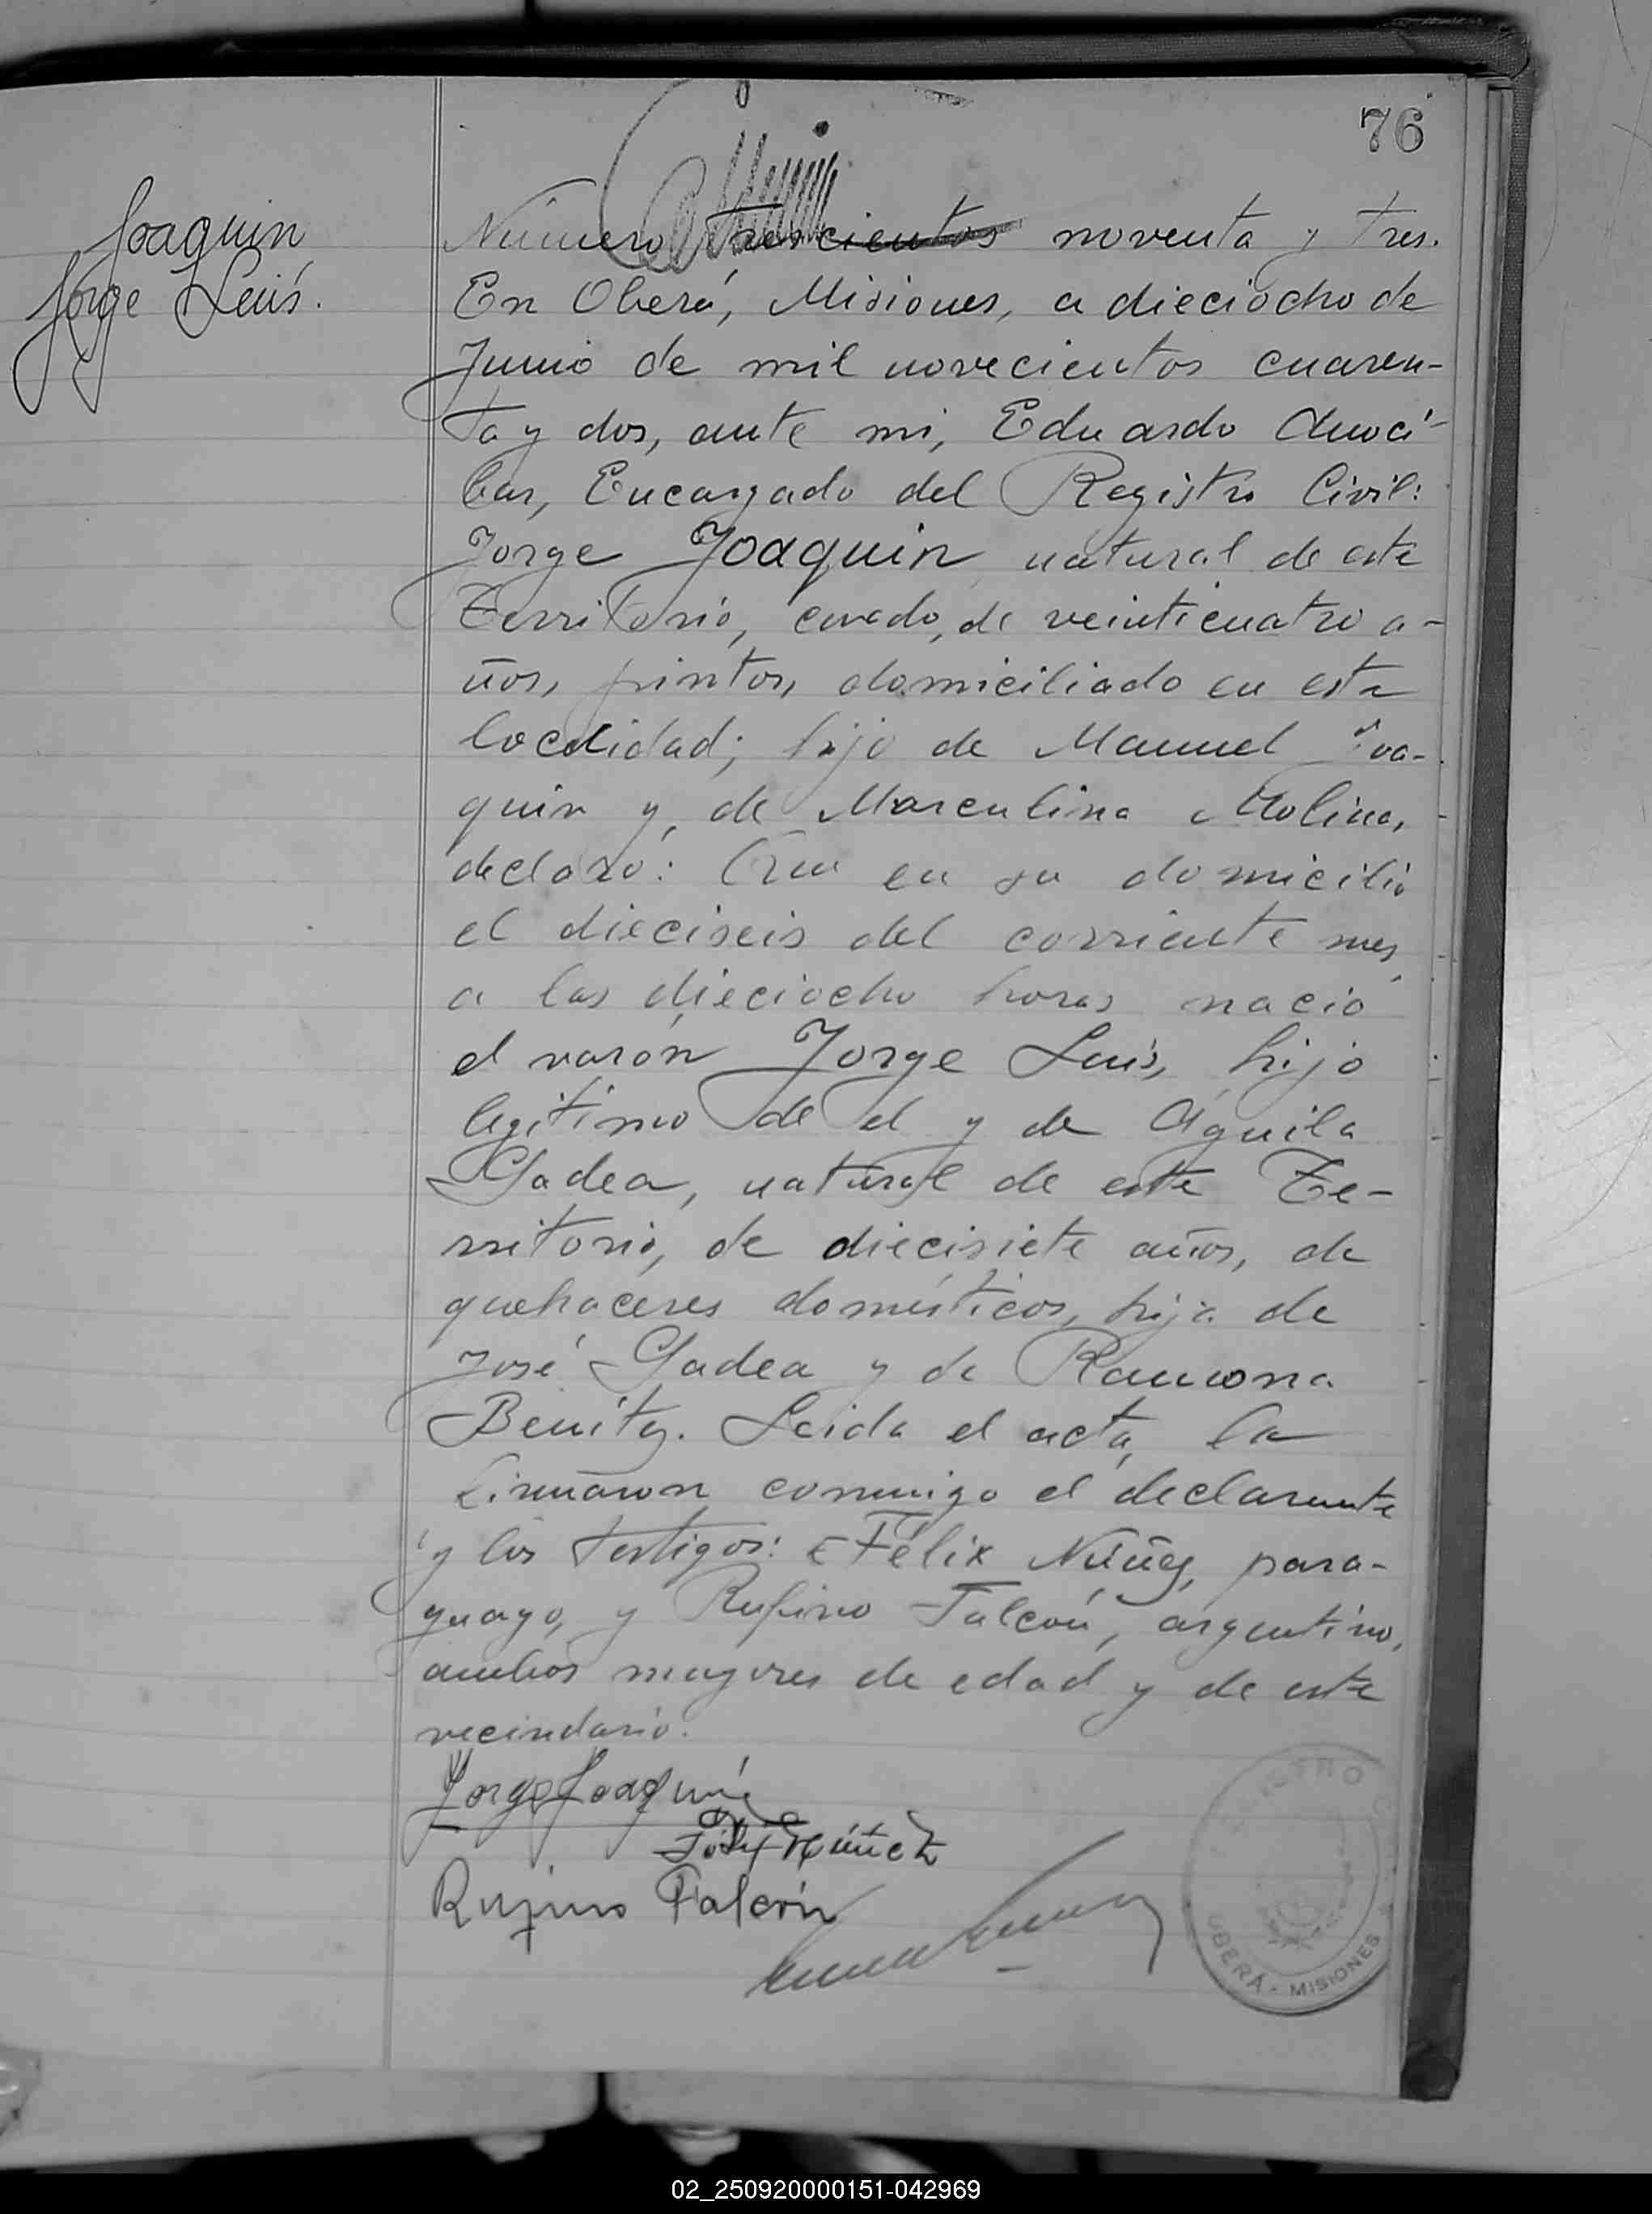 76
Joaquin
Jorge Luís.
Número Trescientos noventa y tres.
En Oberá, Misiones, a dieciocho de
Junio de mil novecientos cuaren-
ta y dos, ante mi, Eduardo Amocí-
bar, Encargado del Registro Civil:
Jorge Joaquin natural de este
Territorio, casado, de veinticuatro a-
ños, pintor, domiciliado en esta
localidad; hijo de Manuel Joa-
quin y, de Marculina Molina,
declaró: Que en su domicilio
el dieciseis del corriente mes
a las dieciocho horas nació
el varón Jorge Luis, hijo
legitimo de el y de Aguila
Gadea, natural de este Te-
rritorio, de diecisiete años, de
quehaceres domésticos, hija de
José Gadea y de Ramona
Benítez. Leida el acta, la
firmaron conmigo el declarante
y los testigos: Félix Núñez, para-
guayo, y Rufino Falcón, argentino,
ambos mayores de edad y de este
vecindario.
Jorge Joaquin
Félix Núñez
Rufino Falcón
REGISTRO
OBERÁ - MISIONES
02_250920000151-042969